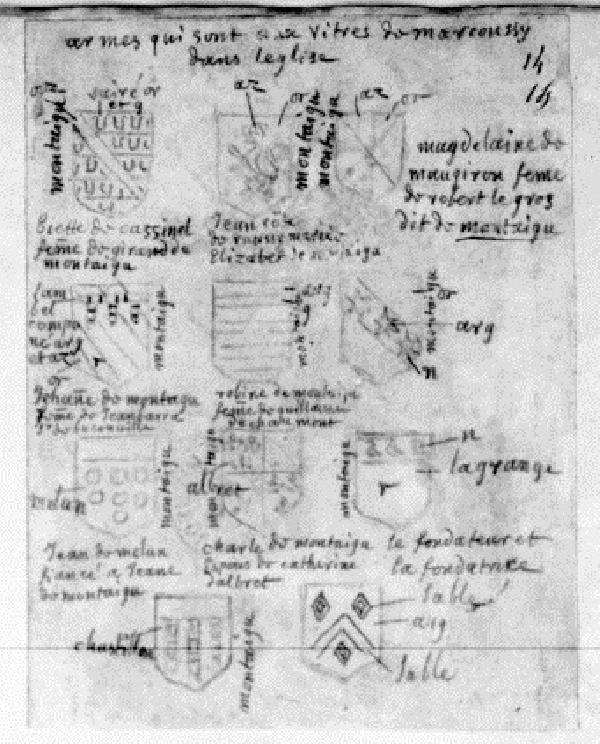 armes qui sont aux vitres de marcoussy
dans leglise
14
15
vaire or
montaigu
az
or
montaigu
montaigu
az
or
magdelaine de
maugiron feme
de robert le gros
dit de montaigu
biette de cassinel
feme de girard de
montaigu
Jean
Elizabet de montaigu
lam
bel
compo
ne arg
et az
r
or
montaigu
arg
montaigu
montaigu
or
arg
n
Jehanne de montagu
feme de Jean
robine de montaigu
feme de guillaume
montaigu
albret
montaigu
montaigu
n
r
lagrange
melun
Jean de melun
fiancé a Jeane
de montaigu
charle de montaigu
espous de catherine
dalbret
le fondateur et
la fondatrice
chastillon
montaigu
sable
arg
sable